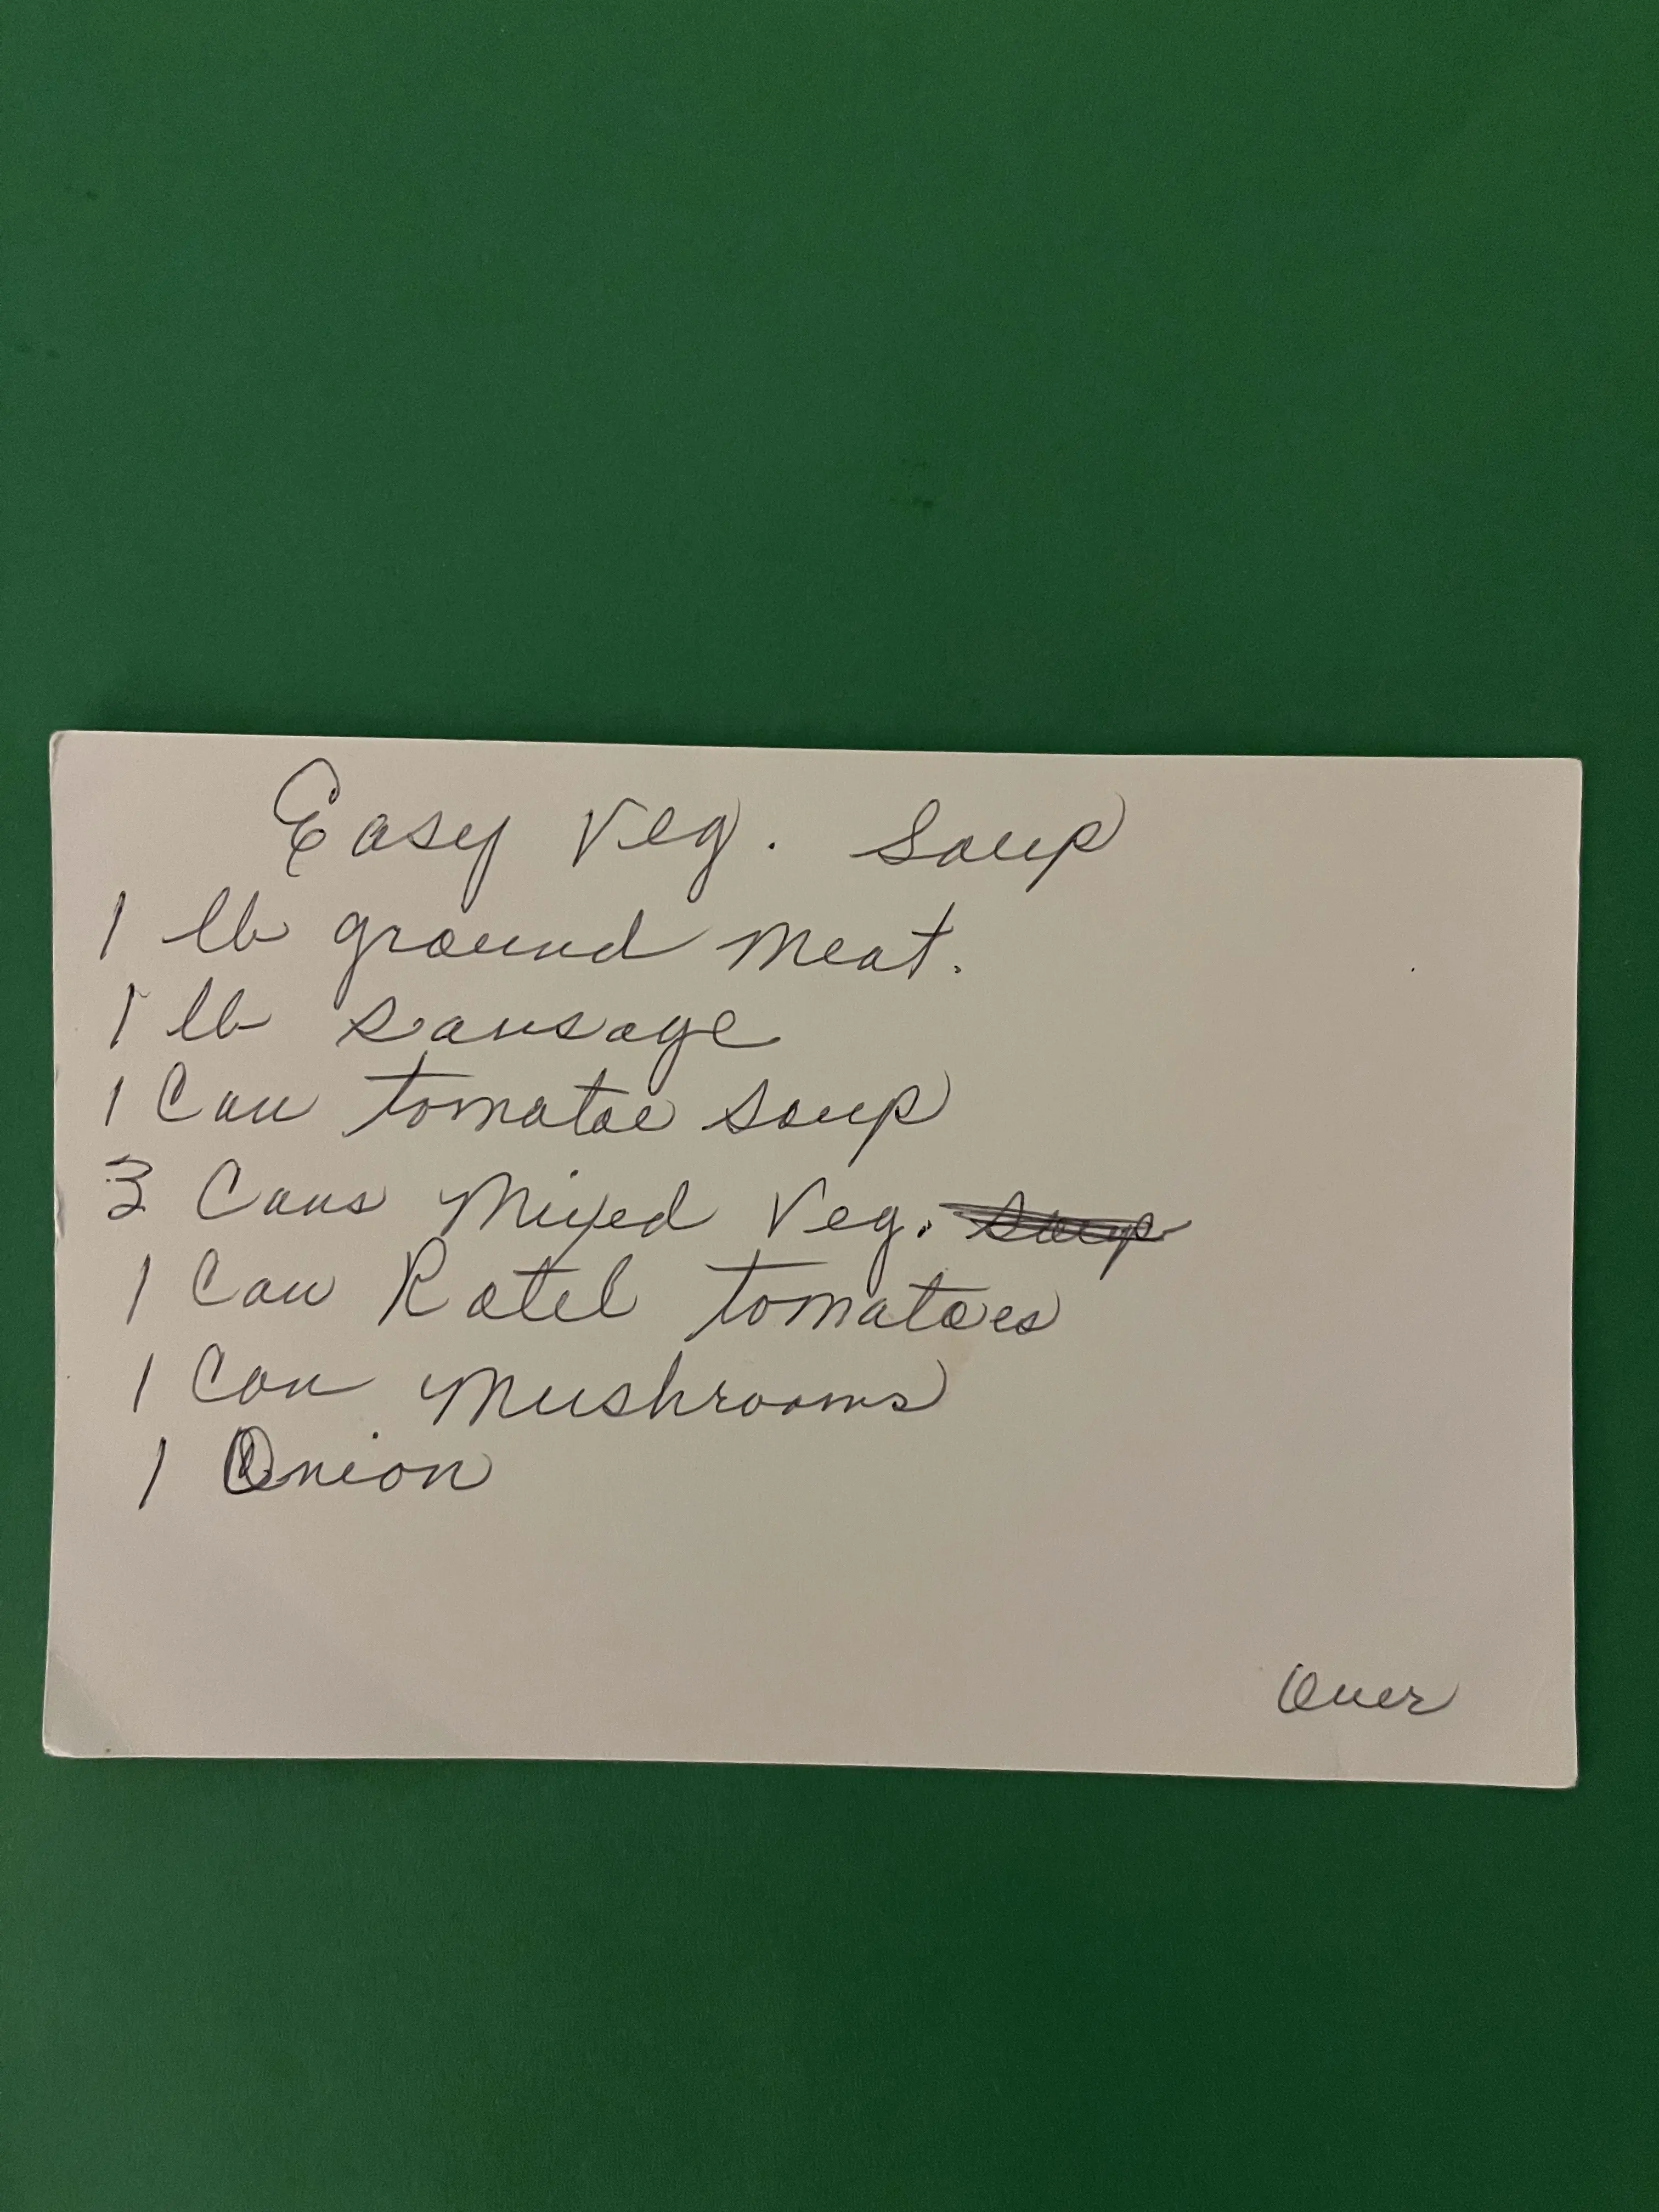 Easy Veg. Soup
1 lb ground meat.
1 lb sausage
1 Can tomatoe soup
3 Cans Mixed Veg. soup
1 Can Rotel tomatoes
1 Can Mushrooms
1 Onion
Over